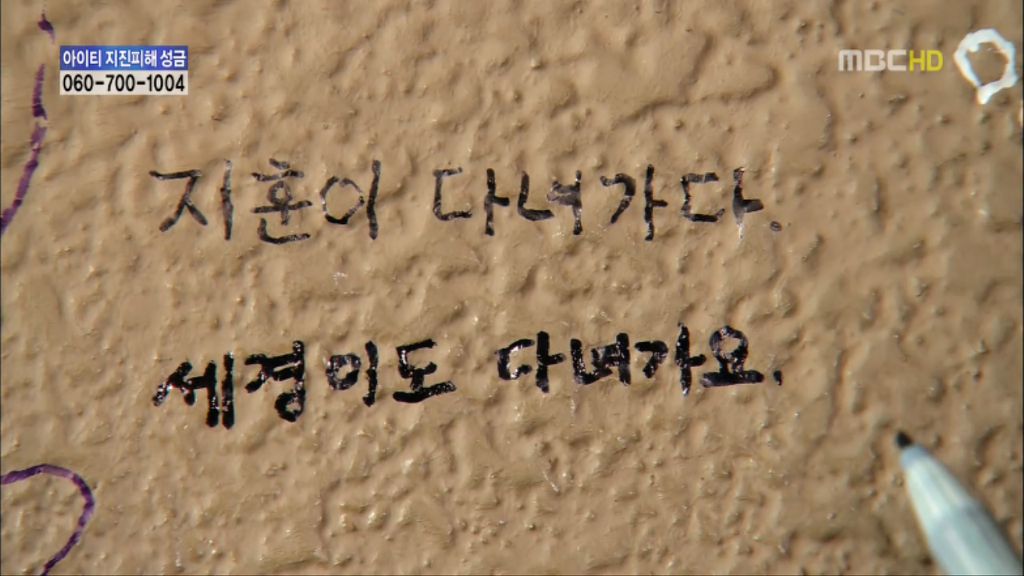 아이티 지진피해 성금
060-700-1004
MBC HD
지훈이 다녀가다.
세경이도 다녀가요.